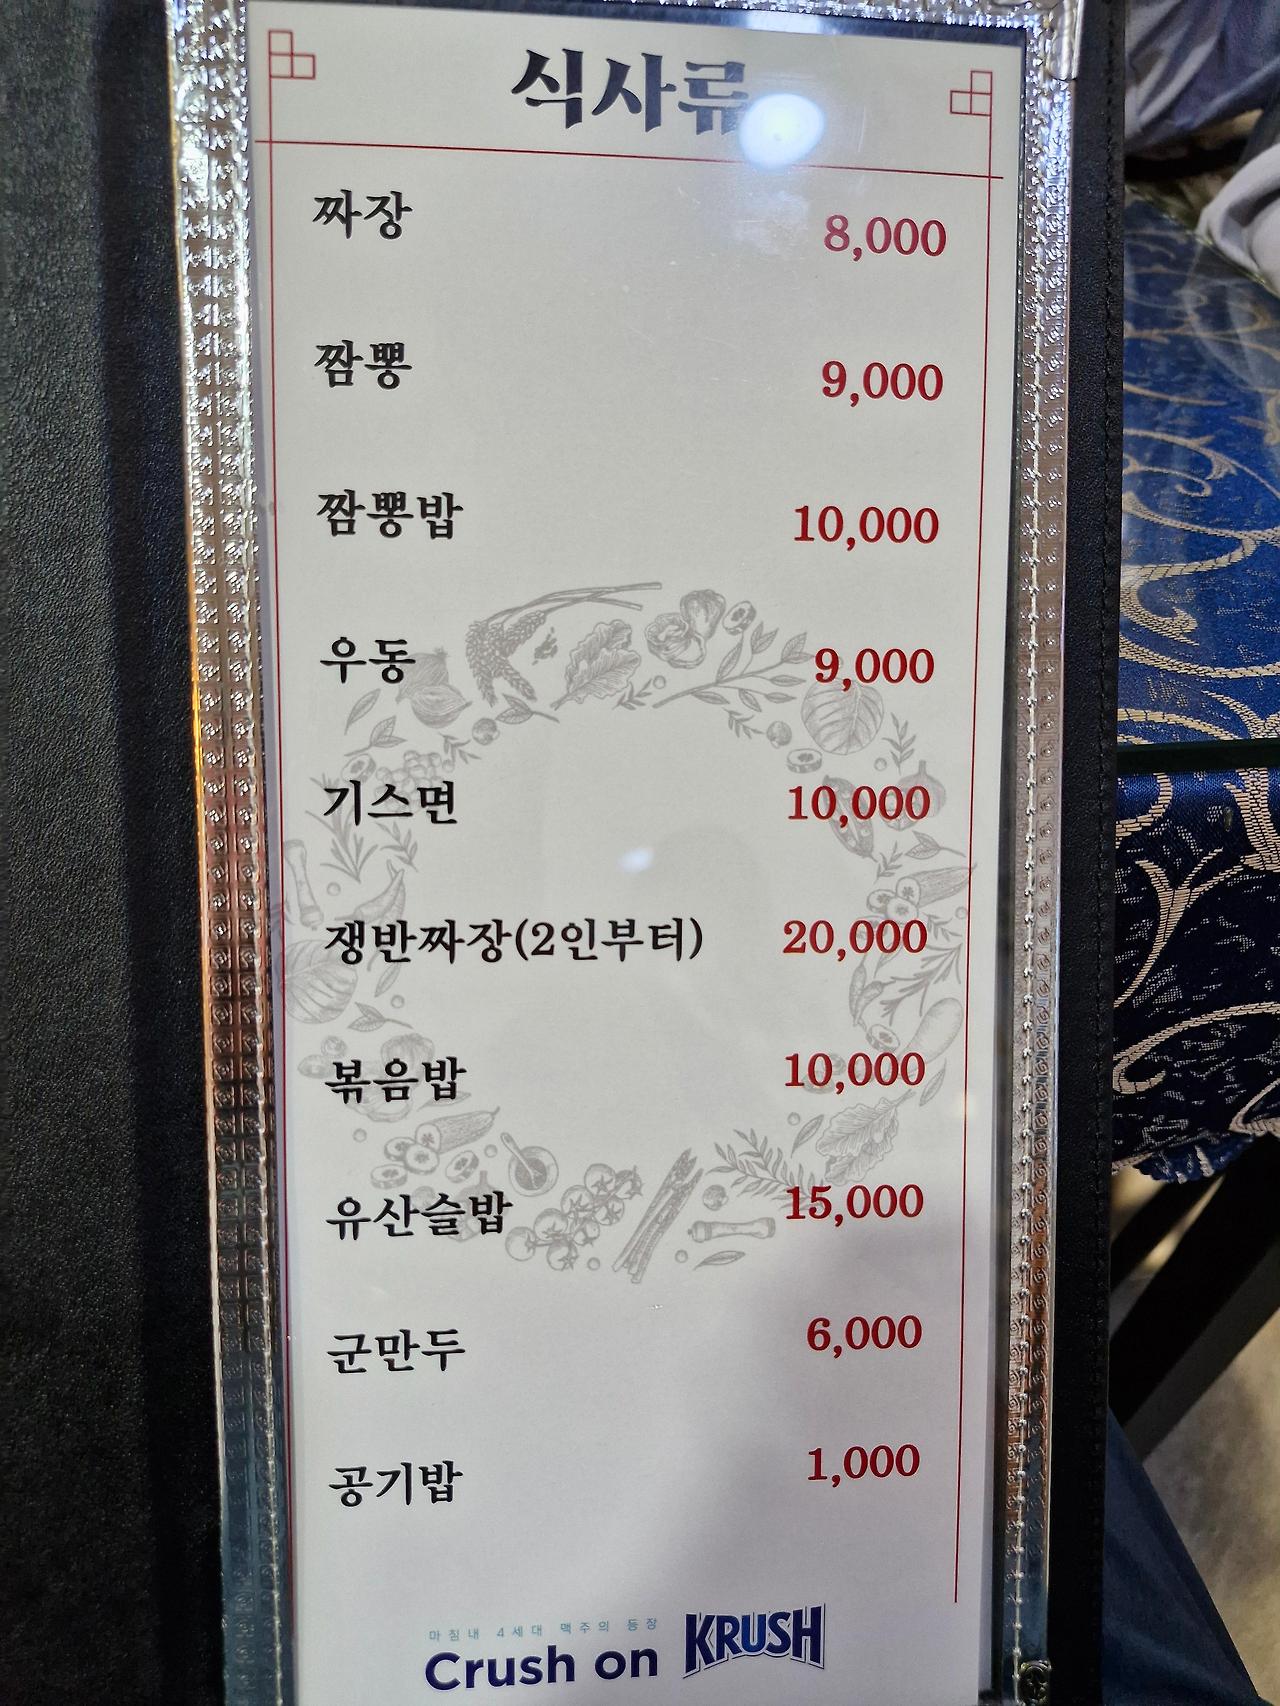 식사류
짜장 8,000
짬뽕 9,000
짬뽕밥 10,000
우동 9,000
기스면 10,000
쟁반짜장(2인부터) 20,000
볶음밥 10,000
유산슬밥 15,000
군만두 6,000
공기밥 1,000
마침내 4세대 맥주의 등장
Crush on KRUSH